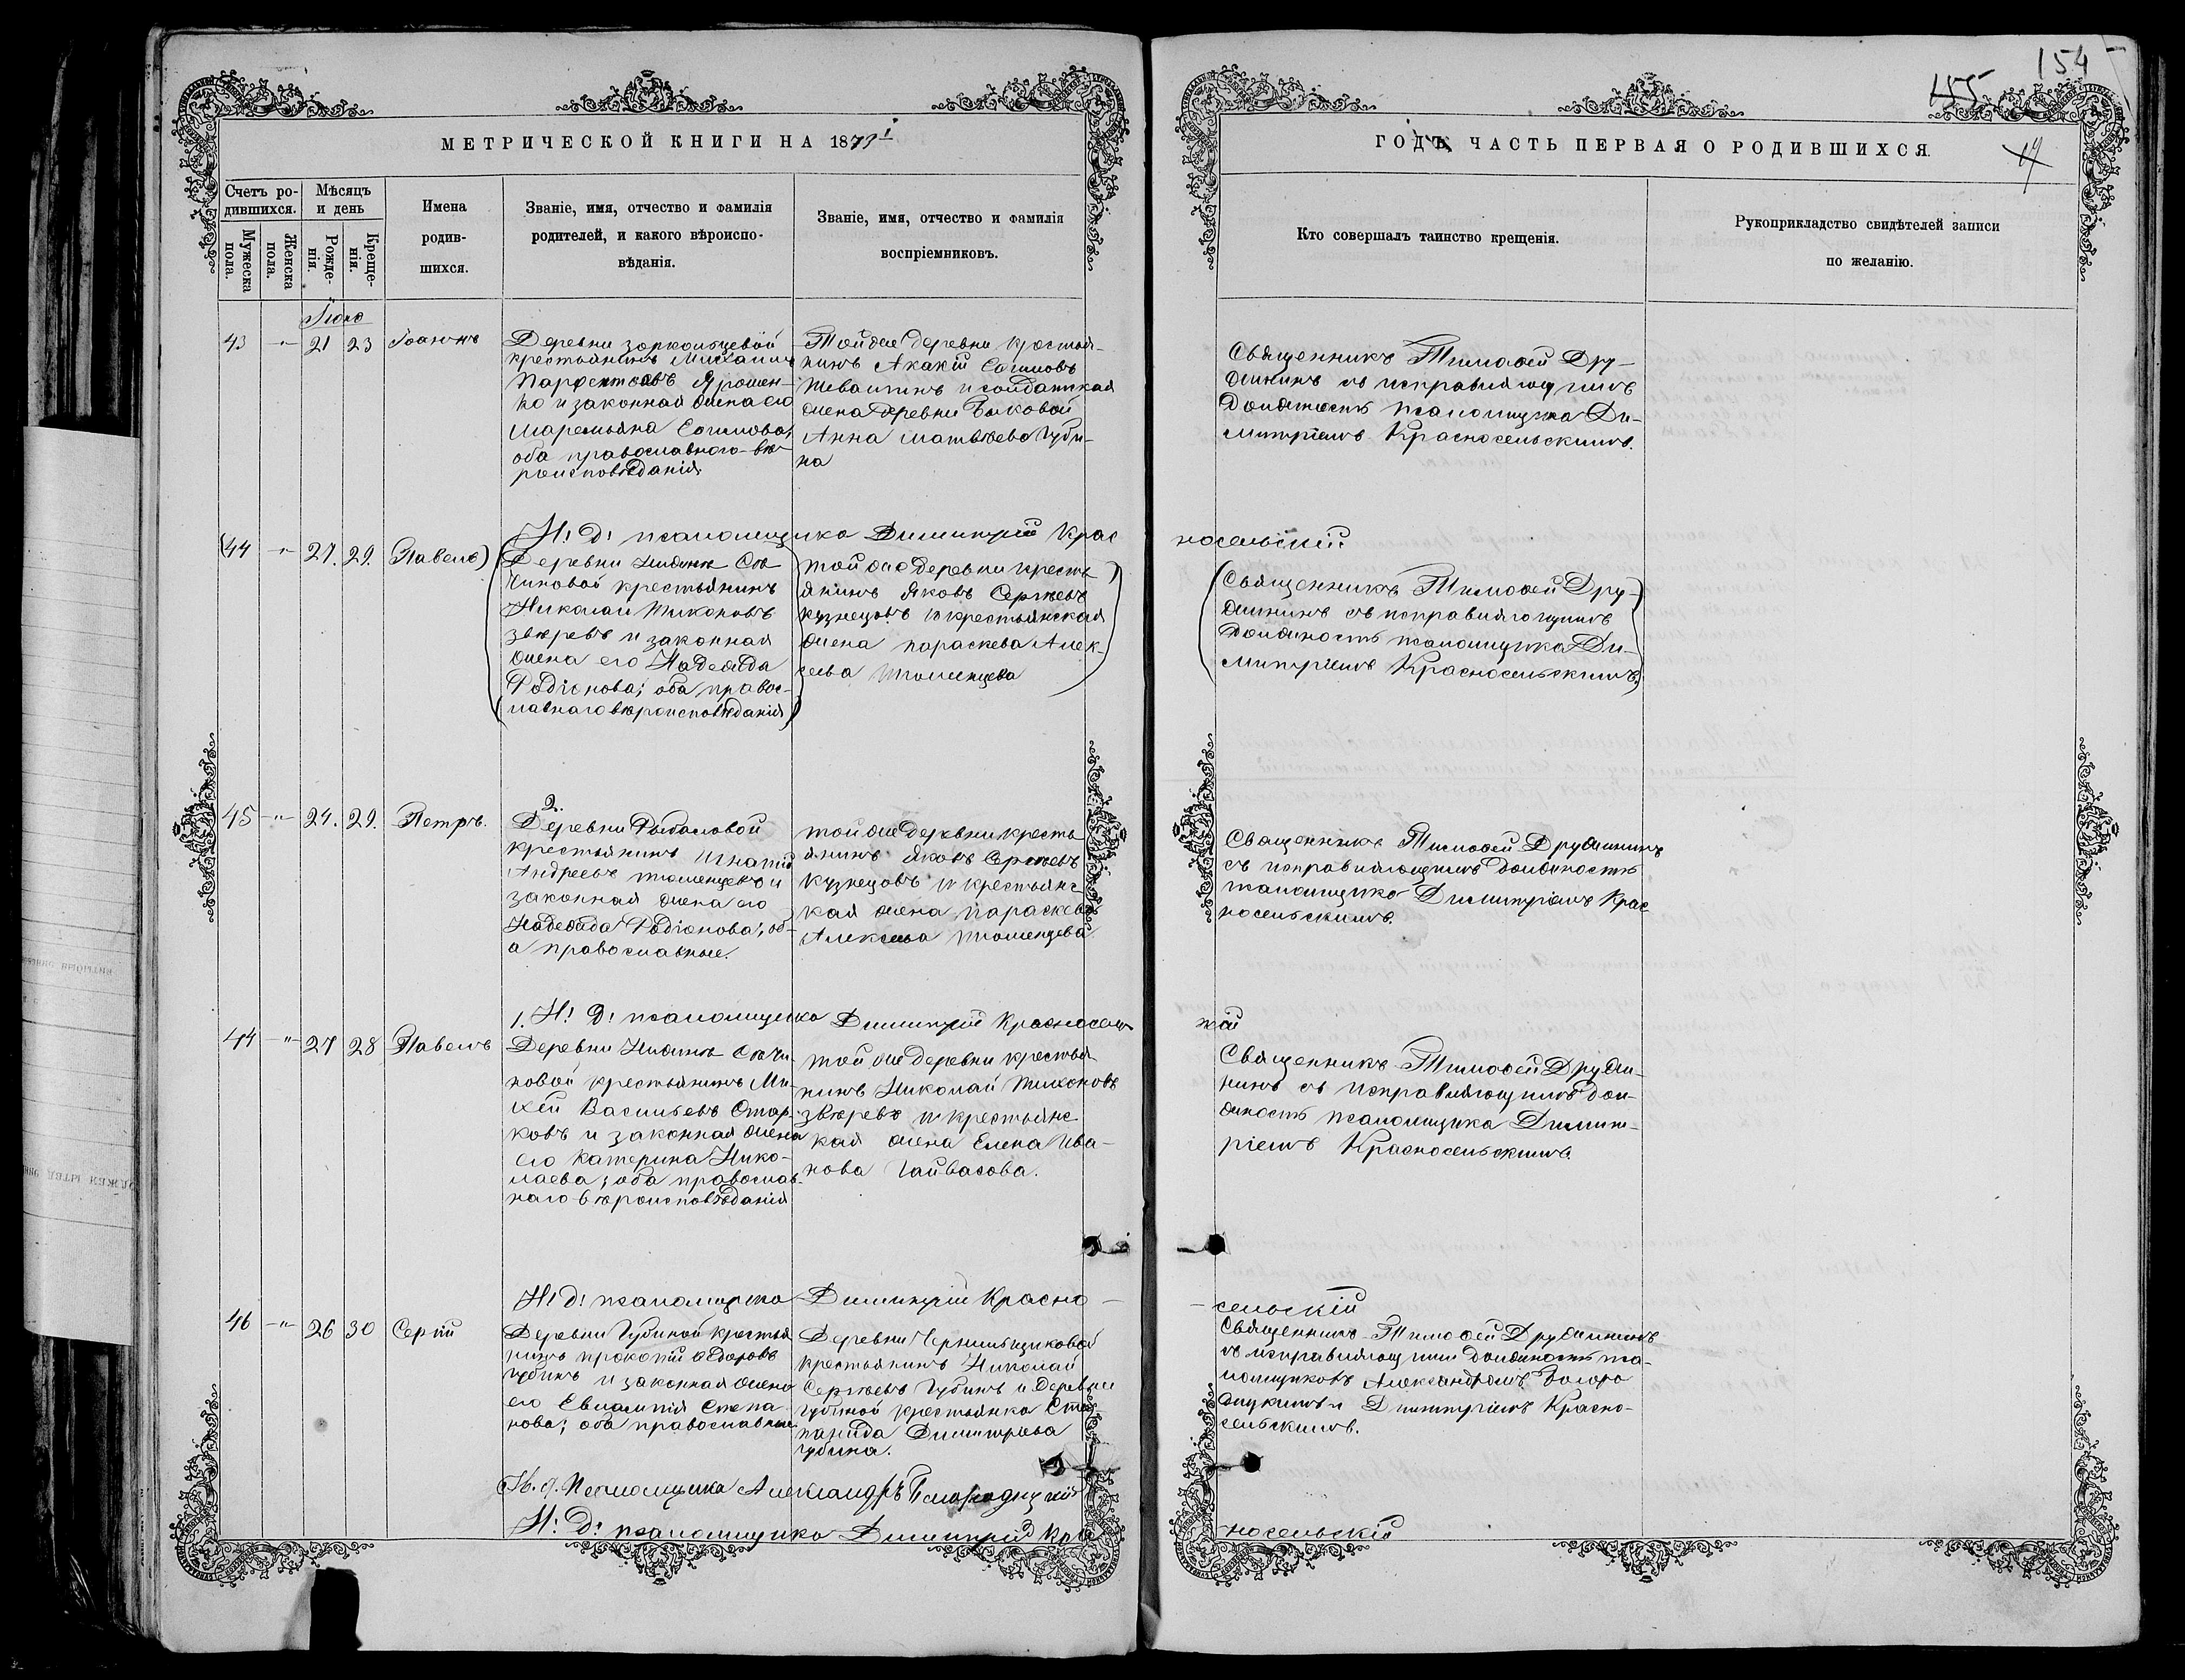 154
155
МЕТРИЧЕСКОЙ КНИГИ НА 1879
ГОДЪ, ЧАСТЬ ПЕРВАЯ О РОДИВШИХСЯ.
Счетъ ро-
дившихся.
Мужеска
пола.
Женска
пола.
Мѣсяцъ
и день
Рожде-
нія.
Креще-
нія.
Имена
родив-
шихся.
Званіе, имя, отчество и фамилія
родителей, и какого вѣроиспо-
вѣданія.
Званіе, имя, отчество и фамилія
воспріемниковъ.
Кто совершалъ таинство крещенія.
Рукоприкладство свидѣтелей записи
по желанію.
43 -"- 21 23 Іоаннъ
Деревни
крестьянинъ Михаилъ
Ярошен-
ко и законная жена его
оба православнаго вѣ-
роисповѣданія
Той же деревни крестья-
нинъ Акакій
и солдатская
жена деревни Быковой
Анна Матвѣева Губи-
на
Священникъ Тимофей Дру-
жининъ съ исправляющимъ
должность псаломщика Ди-
митріемъ Красносельскимъ.
И: д: псаломщика Димитрій Крас
носельскій
(44 -"- 27. 29. Павелъ)
Деревни
крестьянинъ
Николай Тихоновъ
Звѣревъ и законная
жена его Надежда
Родіонова; оба правос-
лавнаго вѣроисповѣданія
той же деревни кресть
янинъ Яковъ Сергѣевъ
Кузнецовъ и крестьянская
жена Параскева Алек-
сеева Тюменцева
Священникъ Тимофей Дру-
жининъ съ исправляющимъ
должность псаломщика Ди-
митріемъ Красносельскимъ.
2.
45 -"- 24. 29. Петръ.
Деревни Рыбаловой
крестьянинъ Игнатій
Андреевъ Тюменцевъ и
законная жена его
Надежда Родіонова; об-
а православные.
той же деревни кресть
янинъ Яковъ Сергѣевъ
Кузнецовъ и крестьянс
кая жена Параскева
Алексеева Тюменцева
Священникъ Тимофей Дружининъ
съ исправляющимъ должность
псаломщика Димитріемъ Крас
носельскимъ.
1. И: д: псаломщика Димитрій Красносельс
кій
44 -"- 27 28 Павелъ
Деревни
новой крестьянинъ Ми-
хей Васильевъ
ковъ и законная жена
его Катерина Нико-
лаева; оба православ-
наго вѣроисповѣданія
той же деревни крестья
нинъ Николай Тихоновъ
Звѣревъ и крестьянс
кая жена Елена Ива-
нова
Священникъ Тимофей Дружи-
нинъ съ исправляющимъ дол-
жность псаломщика Димит-
ріемъ Красносельскимъ.
И: д: псаломщика Димитрій Красно-
сельскій
46 -"- 26 30 Сергій
Деревни Губиной крестья
нинъ Прокопій Ѳедоровъ
Губинъ и законная жена
его Евлампія Степа
нова; оба православные
Деревни
крестьянинъ Николай
Сергѣевъ Губинъ и деревни
Губиной крестьянка Сте-
панида Димитріева
Губина.
Священникъ Тимофей Дружининъ
съ исправляющими должность пса-
ломщиковъ Александромъ
и Димитріемъ Красно-
сельскимъ.
И. д. Псаломщика Александръ
И: д: псаломщика Димитрій Крас
носельскій